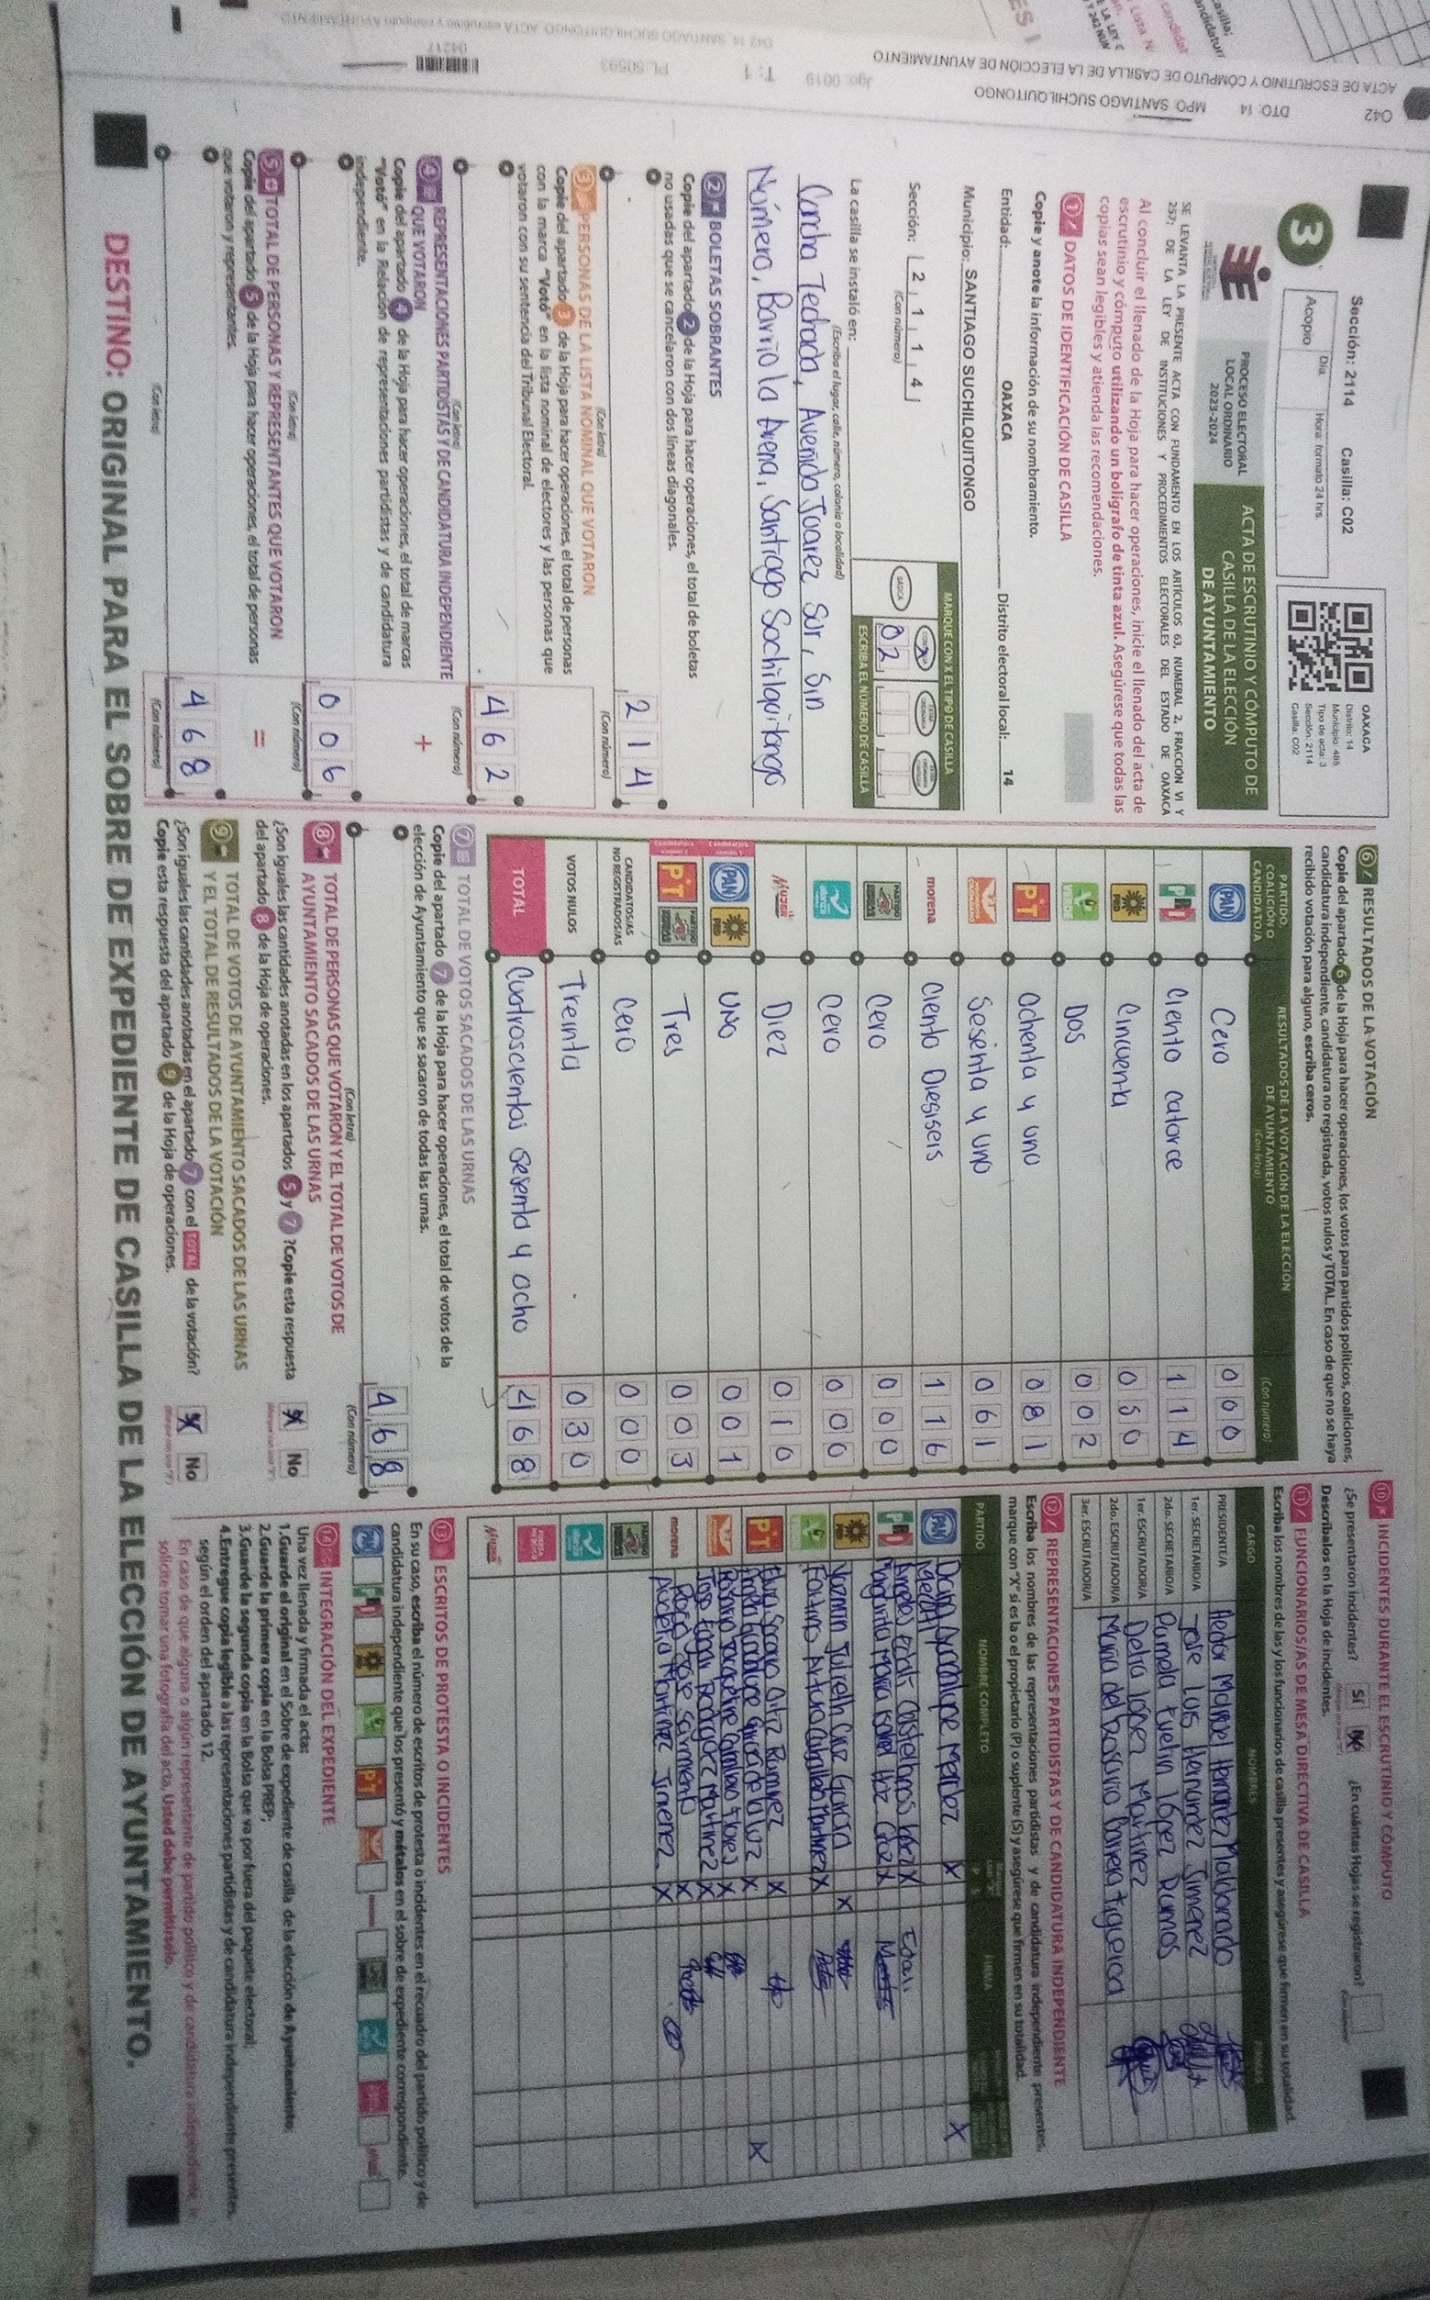 042 DTO: 14 MPO: SANTIAGO SUCHILQUITONGO
ACTA DE ESCRUTINIO Y CÓMPUTO DE CASILLA DE LA ELECCIÓN DE AYUNTAMIENTO
Sección: 2114 Casilla: C02
Día Hora: formato 24 hrs
Acopio
3
OAXACA
Distrito: 14
Municipio: 485
Tipo de acta: 3
Sección: 2114
Casilla: C02
PROCESO ELECTORAL
LOCAL ORDINARIO
2023-2024
ACTA DE ESCRUTINIO Y CÓMPUTO DE
CASILLA DE LA ELECCIÓN
DE AYUNTAMIENTO
SE LEVANTA LA PRESENTE ACTA CON FUNDAMENTO EN LOS ARTÍCULOS 63, NUMERAL 2, FRACCIÓN VI Y
257; DE LA LEY DE INSTITUCIONES Y PROCEDIMIENTOS ELECTORALES DEL ESTADO DE OAXACA
Al concluir el llenado de la Hoja para hacer operaciones, inicie el llenado del acta de
escrutinio y cómputo utilizando un bolígrafo de tinta azul. Asegúrese que todas las
copias sean legibles y atienda las recomendaciones.
1 DATOS DE IDENTIFICACIÓN DE CASILLA
Copie y anote la información de su nombramiento.
Entidad: OAXACA Distrito electoral local: 14
Municipio: SANTIAGO SUCHILQUITONGO
Sección: 2 1 1 4
(Con número)
MARQUE CON X EL TIPO DE CASILLA
BÁSICA
02
ESCRIBA EL NÚMERO DE CASILLA
La casilla se instaló en:
(Escriba el lugar, calle, número, colonia o localidad)
Cancha Techada, Avenida Juarez Sur, Sin
Número, Barrio la Arena, Santiago Suchilquitongo
2 BOLETAS SOBRANTES
Copie del apartado 2 de la Hoja para hacer operaciones, el total de boletas
no usadas que se cancelaron con dos líneas diagonales.
214
(Con letra) (Con número)
3 PERSONAS DE LA LISTA NOMINAL QUE VOTARON
Copie del apartado 3 de la Hoja para hacer operaciones, el total de personas
con la marca "Votó" en la lista nominal de electores y las personas que
votaron con su sentencia del Tribunal Electoral.
462
(Con letra) (Con número)
+
4 REPRESENTACIONES PARTIDISTAS Y DE CANDIDATURA INDEPENDIENTE
QUE VOTARON
Copie del apartado 4 de la Hoja para hacer operaciones, el total de marcas
"Votó" en la Relación de representaciones partidistas y de candidatura
independiente.
006
(Con letra) (Con número)
=
5 TOTAL DE PERSONAS Y REPRESENTANTES QUE VOTARON
Copie del apartado 5 de la Hoja para hacer operaciones, el total de personas
que votaron y representantes.
468
(Con letra) (Con número)
6 RESULTADOS DE LA VOTACIÓN
Copie del apartado 6 de la Hoja para hacer operaciones, los votos para partidos políticos, coaliciones,
candidatura independiente, candidatura no registrada, votos nulos y TOTAL. En caso de que no se haya
recibido votación para alguno, escriba ceros.
PARTIDO, COALICIÓN O CANDIDATO/A RESULTADOS DE LA VOTACIÓN DE LA ELECCIÓN DE AYUNTAMIENTO (Con letra) (Con número)
PAN Cero 000
PRI Ciento catorce 114
PRD Cincuenta 050
VERDE Dos 002
PT Ochenta y uno 081
Sesenta y uno 061
morena Ciento Diesiseis 116
Cero 000
Cero 000
MUJER Diez 010
PAN PRD UNO 001
PT Tres 003
CANDIDATOS/AS NO REGISTRADOS/AS Cero 000
VOTOS NULOS Treinta 030
TOTAL Cuatroscientos sesenta y ocho 468
7 TOTAL DE VOTOS SACADOS DE LAS URNAS
Copie del apartado 7 de la Hoja para hacer operaciones, el total de votos de la
elección de Ayuntamiento que se sacaron de todas las urnas.
468
(Con letra) (Con número)
8 TOTAL DE PERSONAS QUE VOTARON Y EL TOTAL DE VOTOS DE
AYUNTAMIENTO SACADOS DE LAS URNAS
¿Son iguales las cantidades anotadas en los apartados 5 y 7? Copie esta respuesta
del apartado 8 de la Hoja de operaciones.
No
9 TOTAL DE VOTOS DE AYUNTAMIENTO SACADOS DE LAS URNAS
Y EL TOTAL DE RESULTADOS DE LA VOTACIÓN
¿Son iguales las cantidades anotadas en el apartado 7 con el TOTAL de la votación?
Copie esta respuesta del apartado 9 de la Hoja de operaciones.
No
10 INCIDENTES DURANTE EL ESCRUTINIO Y CÓMPUTO
¿Se presentaron incidentes? Sí No ¿En cuántas Hojas se registraron?
Descríbalos en la Hoja de incidentes.
11 FUNCIONARIOS/AS DE MESA DIRECTIVA DE CASILLA
Escriba los nombres de las y los funcionarios de casilla presentes y asegúrese que firmen en su totalidad.
CARGO NOMBRES
PRESIDENTE/A Hector Manuel Hernandez Maldonado
1er. SECRETARIO/A Jose Luis Hernandez Jimenez
2do. SECRETARIO/A Pamela Evelin López Ramos
1er. ESCRUTADOR/A Delia López Martinez
2do. ESCRUTADOR/A Maria del Rosario Barrera Figueroa
3er. ESCRUTADOR/A
12 REPRESENTACIONES PARTIDISTAS Y DE CANDIDATURA INDEPENDIENTE
Escriba los nombres de las representaciones partidistas y de candidatura independiente presentes,
marque con "X" si es la o el propietario (P) o suplente (S) y asegúrese que firmen en su totalidad.
PARTIDO NOMBRE COMPLETO FIRMA
13 ESCRITOS DE PROTESTA O INCIDENTES
En su caso, escriba el número de escritos de protesta o incidentes en el recuadro del partido político y de
candidatura independiente que los presentó y métalos en el sobre de expediente correspondiente.
14 INTEGRACIÓN DEL EXPEDIENTE
Una vez llenada y firmada el acta:
1.Guarde el original en el Sobre de expediente de casilla de la elección de Ayuntamiento;
2.Guarde la primera copia en la Bolsa PREP;
3.Guarde la segunda copia en la Bolsa que va por fuera del paquete electoral;
4.Entregue copia legible a las representaciones partidistas y de candidatura independiente presentes,
según el orden del apartado 12.
En caso de que alguna o algún representante de partido político y de candidatura independiente, le
solicite tomar una fotografía del acta, Usted debe permitírselo.
DESTINO: ORIGINAL PARA EL SOBRE DE EXPEDIENTE DE CASILLA DE LA ELECCIÓN DE AYUNTAMIENTO.